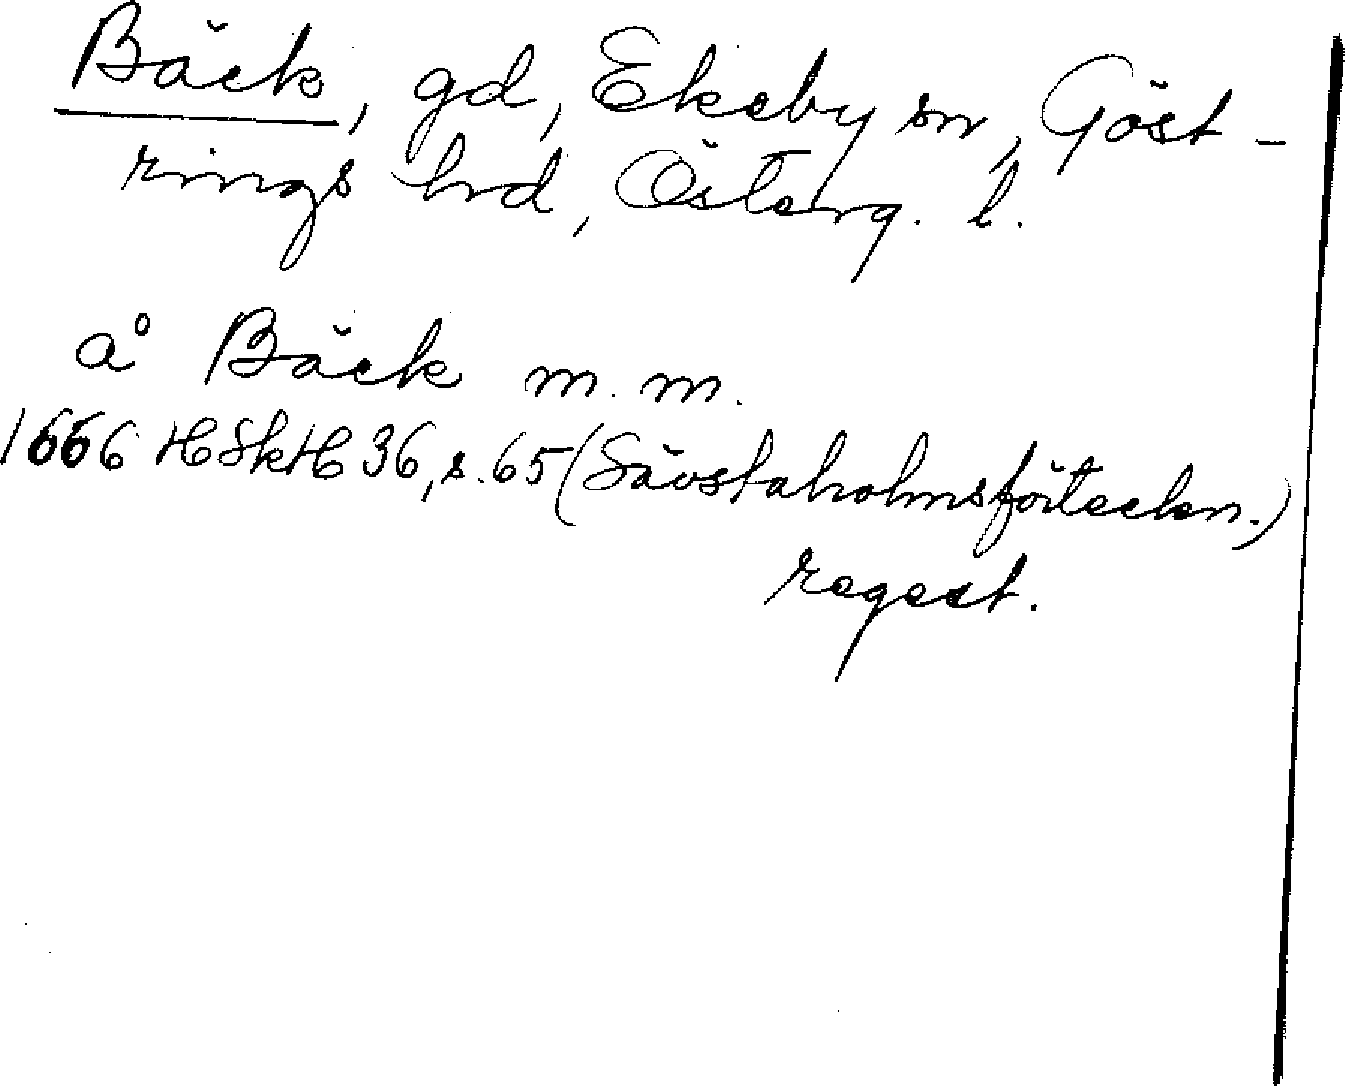 Bäck, gd, Ekeby sn, Göst-
rings hrd, Österg. l.
å Bäck m. m.
1666 HSkH 36, s. 65 (Sävstaholmsförteckn.)
regest.